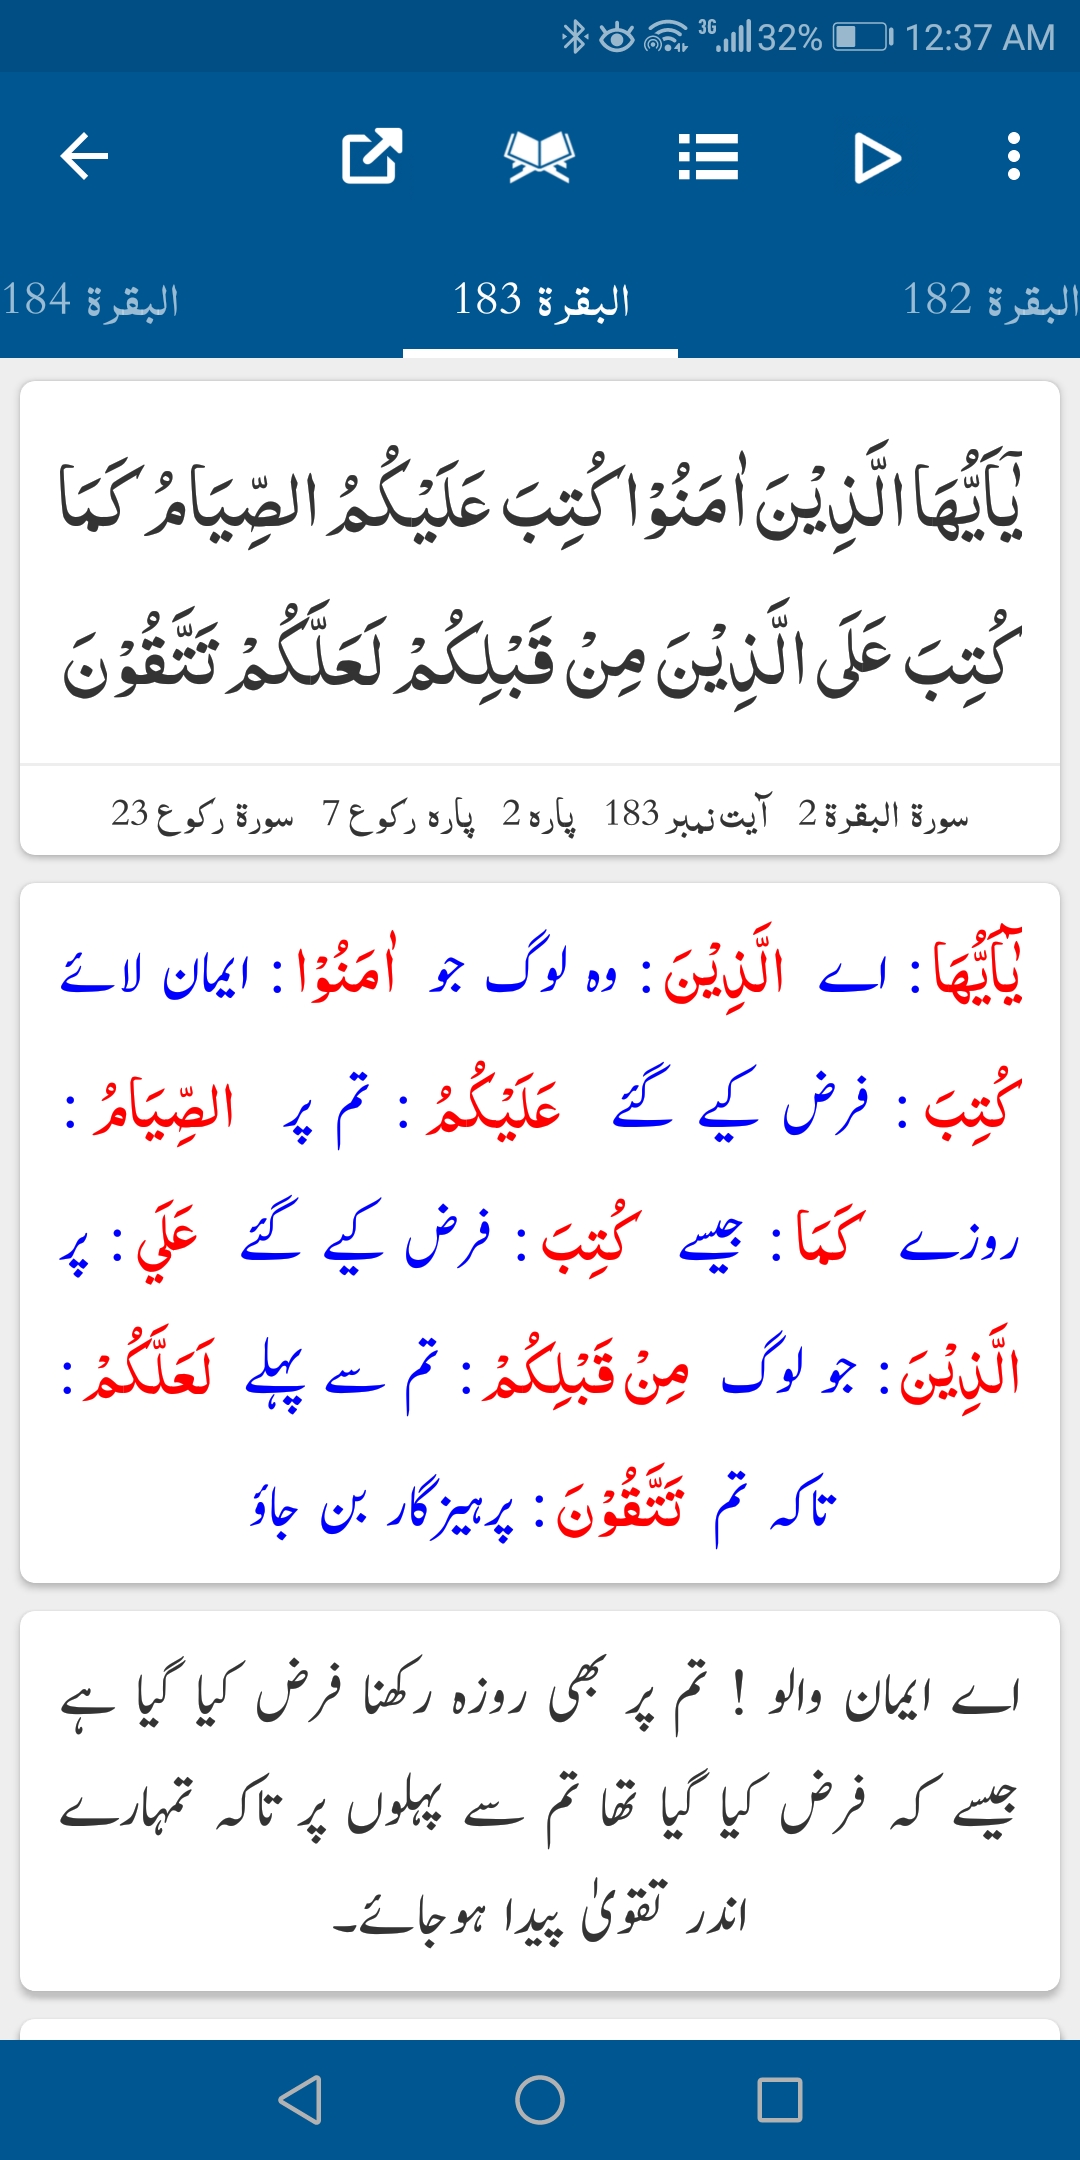 3G 32% 12:37 AM
البقرة 182 البقرة 183 البقرة 184
يٰٓاَيُّهَا الَّذِيْنَ اٰمَنُوْا كُتِبَ عَلَيْكُمُ الصِّيَامُ كَمَا
كُتِبَ عَلَى الَّذِيْنَ مِنْ قَبْلِكُمْ لَعَلَّكُمْ تَتَّقُوْنَ
سورة البقرة 2 آیت نمبر 183 پارہ 2 پارہ رکوع 7 سورة رکوع 23
يٰٓاَيُّهَا : اے الَّذِيْنَ : وہ لوگ جو اٰمَنُوْا : ایمان لائے
كُتِبَ : فرض کیے گئے عَلَيْكُمُ : تم پر الصِّيَامُ :
روزے كَمَا : جیسے كُتِبَ : فرض کیے گئے عَلَي : پر
الَّذِيْنَ : جو لوگ مِنْ قَبْلِكُمْ : تم سے پہلے لَعَلَّكُمْ :
تاکہ تم تَتَّقُوْنَ : پرہیزگار بن جاؤ
اے ایمان والو ! تم پر بھی روزہ رکھنا فرض کیا گیا ہے
جیسے کہ فرض کیا گیا تھا تم سے پہلوں پر تاکہ تمہارے
اندر تقویٰ پیدا ہوجائے۔